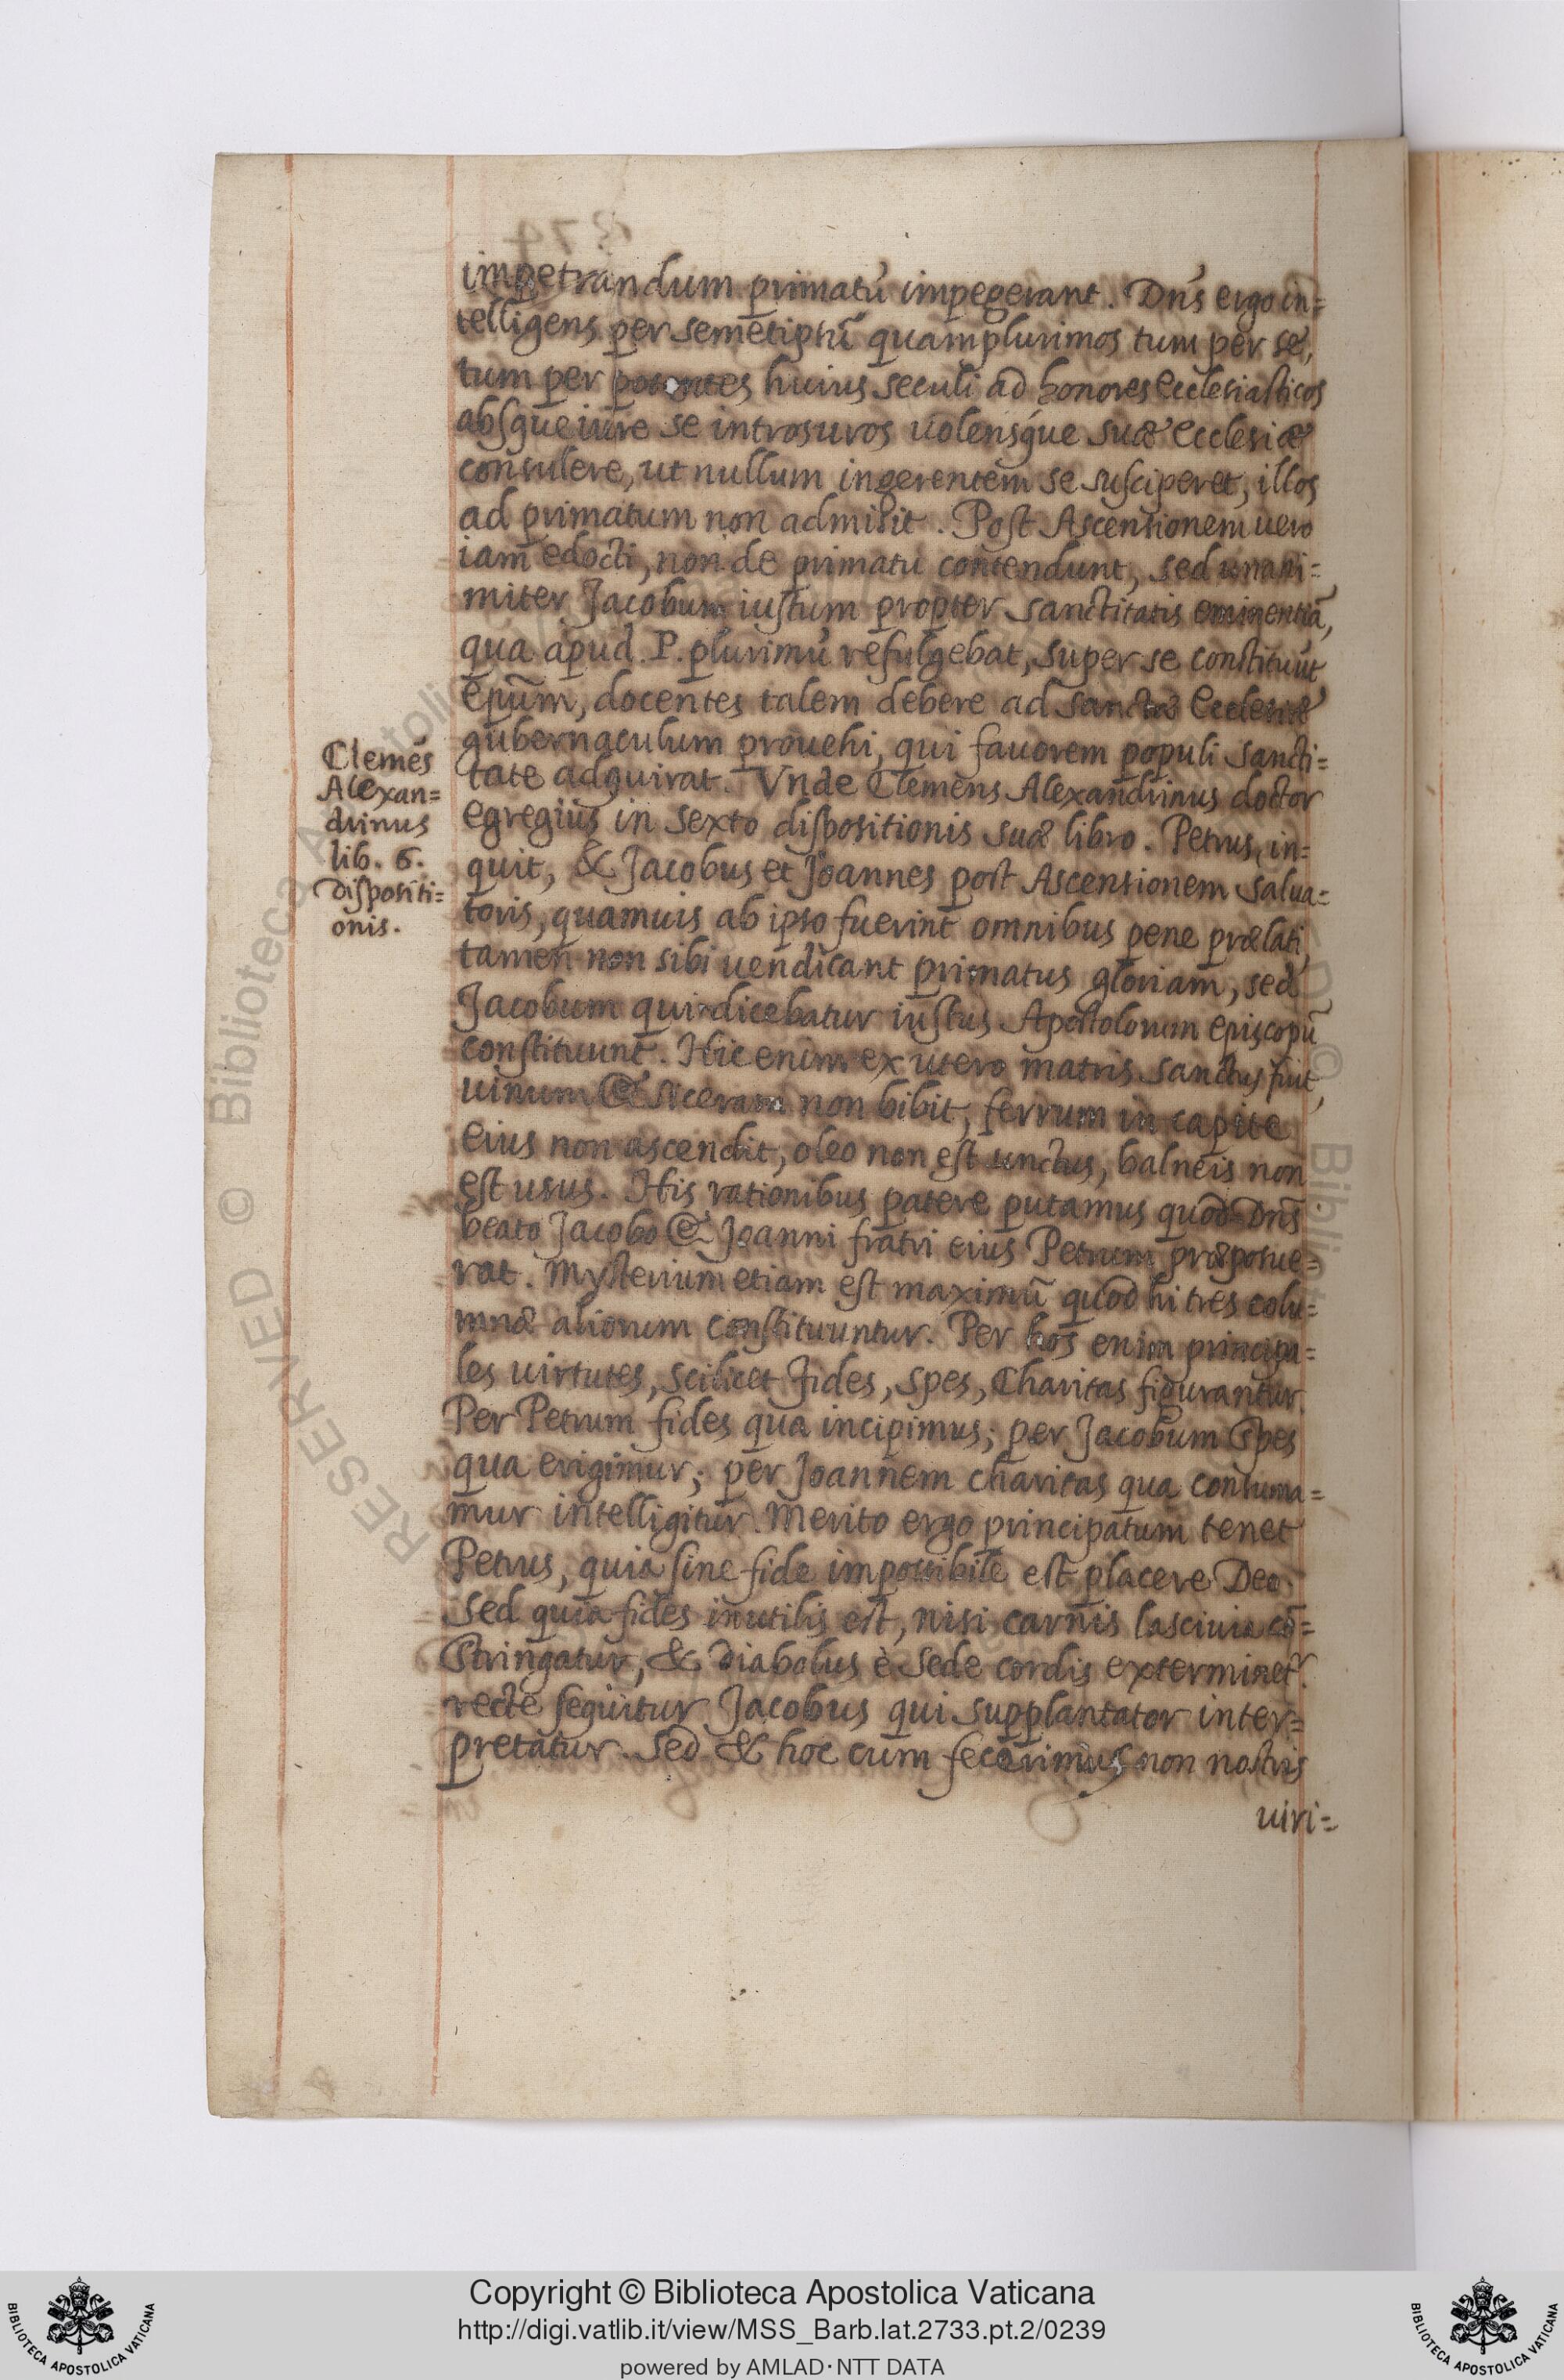 impetrandum primatū impegerant. Dn̄s ergo in=
telligens per semetipsū quamplurimos tum per se,
tum per potentes huius seculi ad honores ecclesiasticos
absque iure se intrusuros uolensq́ue suæ ecclesiæ
consulere, ut nullum ingerentem se susciperet, illos
ad primatum non admisit. Post Ascensionem uero
iam edocti, non de primatu contendunt, sed unani=
miter Jacobum iustum propter sanctitatis eminentiā,
qua apud P. plurimū refulgebat, super se constituūt
ep̄um, docentes talem debere ad sanctæ Ecclesiæ
gubernaculum prouehi, qui fauorem populi sancti=
tate adquirat. Vnde Clemens Alexandrinus doctor
egregius in sexto dispositionis suæ libro. Petrus, in=
quit, & Jacobus et Joannes post Ascensionem Salua=
toris, quamuis ab ipso fuerint omnibus pene prælati,
tamen non sibi uendicant primatus gloriam, sed
Jacobum qui dicebatur iustus Apostolorum episcopū
constituunt. Hic enim ex utero matris sanctus fuit,
uinum & siceram non bibit, ferrum in capite
eius non ascendit, oleo non est unctus, balneis non
est usus. His rationibus patere putamus quod Dn̄s
beato Jacobo & Joanni fratri eius Petrum præposue=
rat. Mysterium etiam est maximū quod hi tres colu=
mnæ aliorum constituuntur. Per hos enim principa=
les uirtutes, scilicet Fides, Spes, Charitas figurantur.
Per Petrum fides qua incipimus; per Jacobum Spes
qua erigimur; per Joannem charitas qua consuma=
mur intelligitur. Merito ergo principatum tenet
Petrus, quia sine fide impossibile est placere Deo.
Sed quia fides inutilis est, nisi carnis lasciuia cō=
stringatur, & diabolus è sede cordis exterminet᷑
recte sequitur Jacobus qui supplantator inter=
pretatur. Sed & hoc cum fecerimus non nostris
uiri=
Clemēs
Alexan=
drinus
lib. 6.
dispositi=
onis.
RESERVED © Biblioteca Apostolica
Copyright © Biblioteca Apostolica Vaticana
http://digi.vatlib.it/view/MSS_Barb.lat.2733.pt.2/0239
powered by AMLAD·NTT DATA
BIBLIOTECA APOSTOLICA VATICANA
BIBLIOTECA APOSTOLICA VATICANA